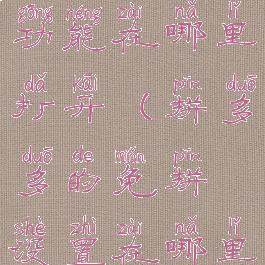 gōng néng zài nǎ lǐ
功能在哪里
dǎ kāi pīn duō
打开（拼多
duō de miǎn pīn
多的免拼
shè zhì zài nǎ lǐ
设置在哪里